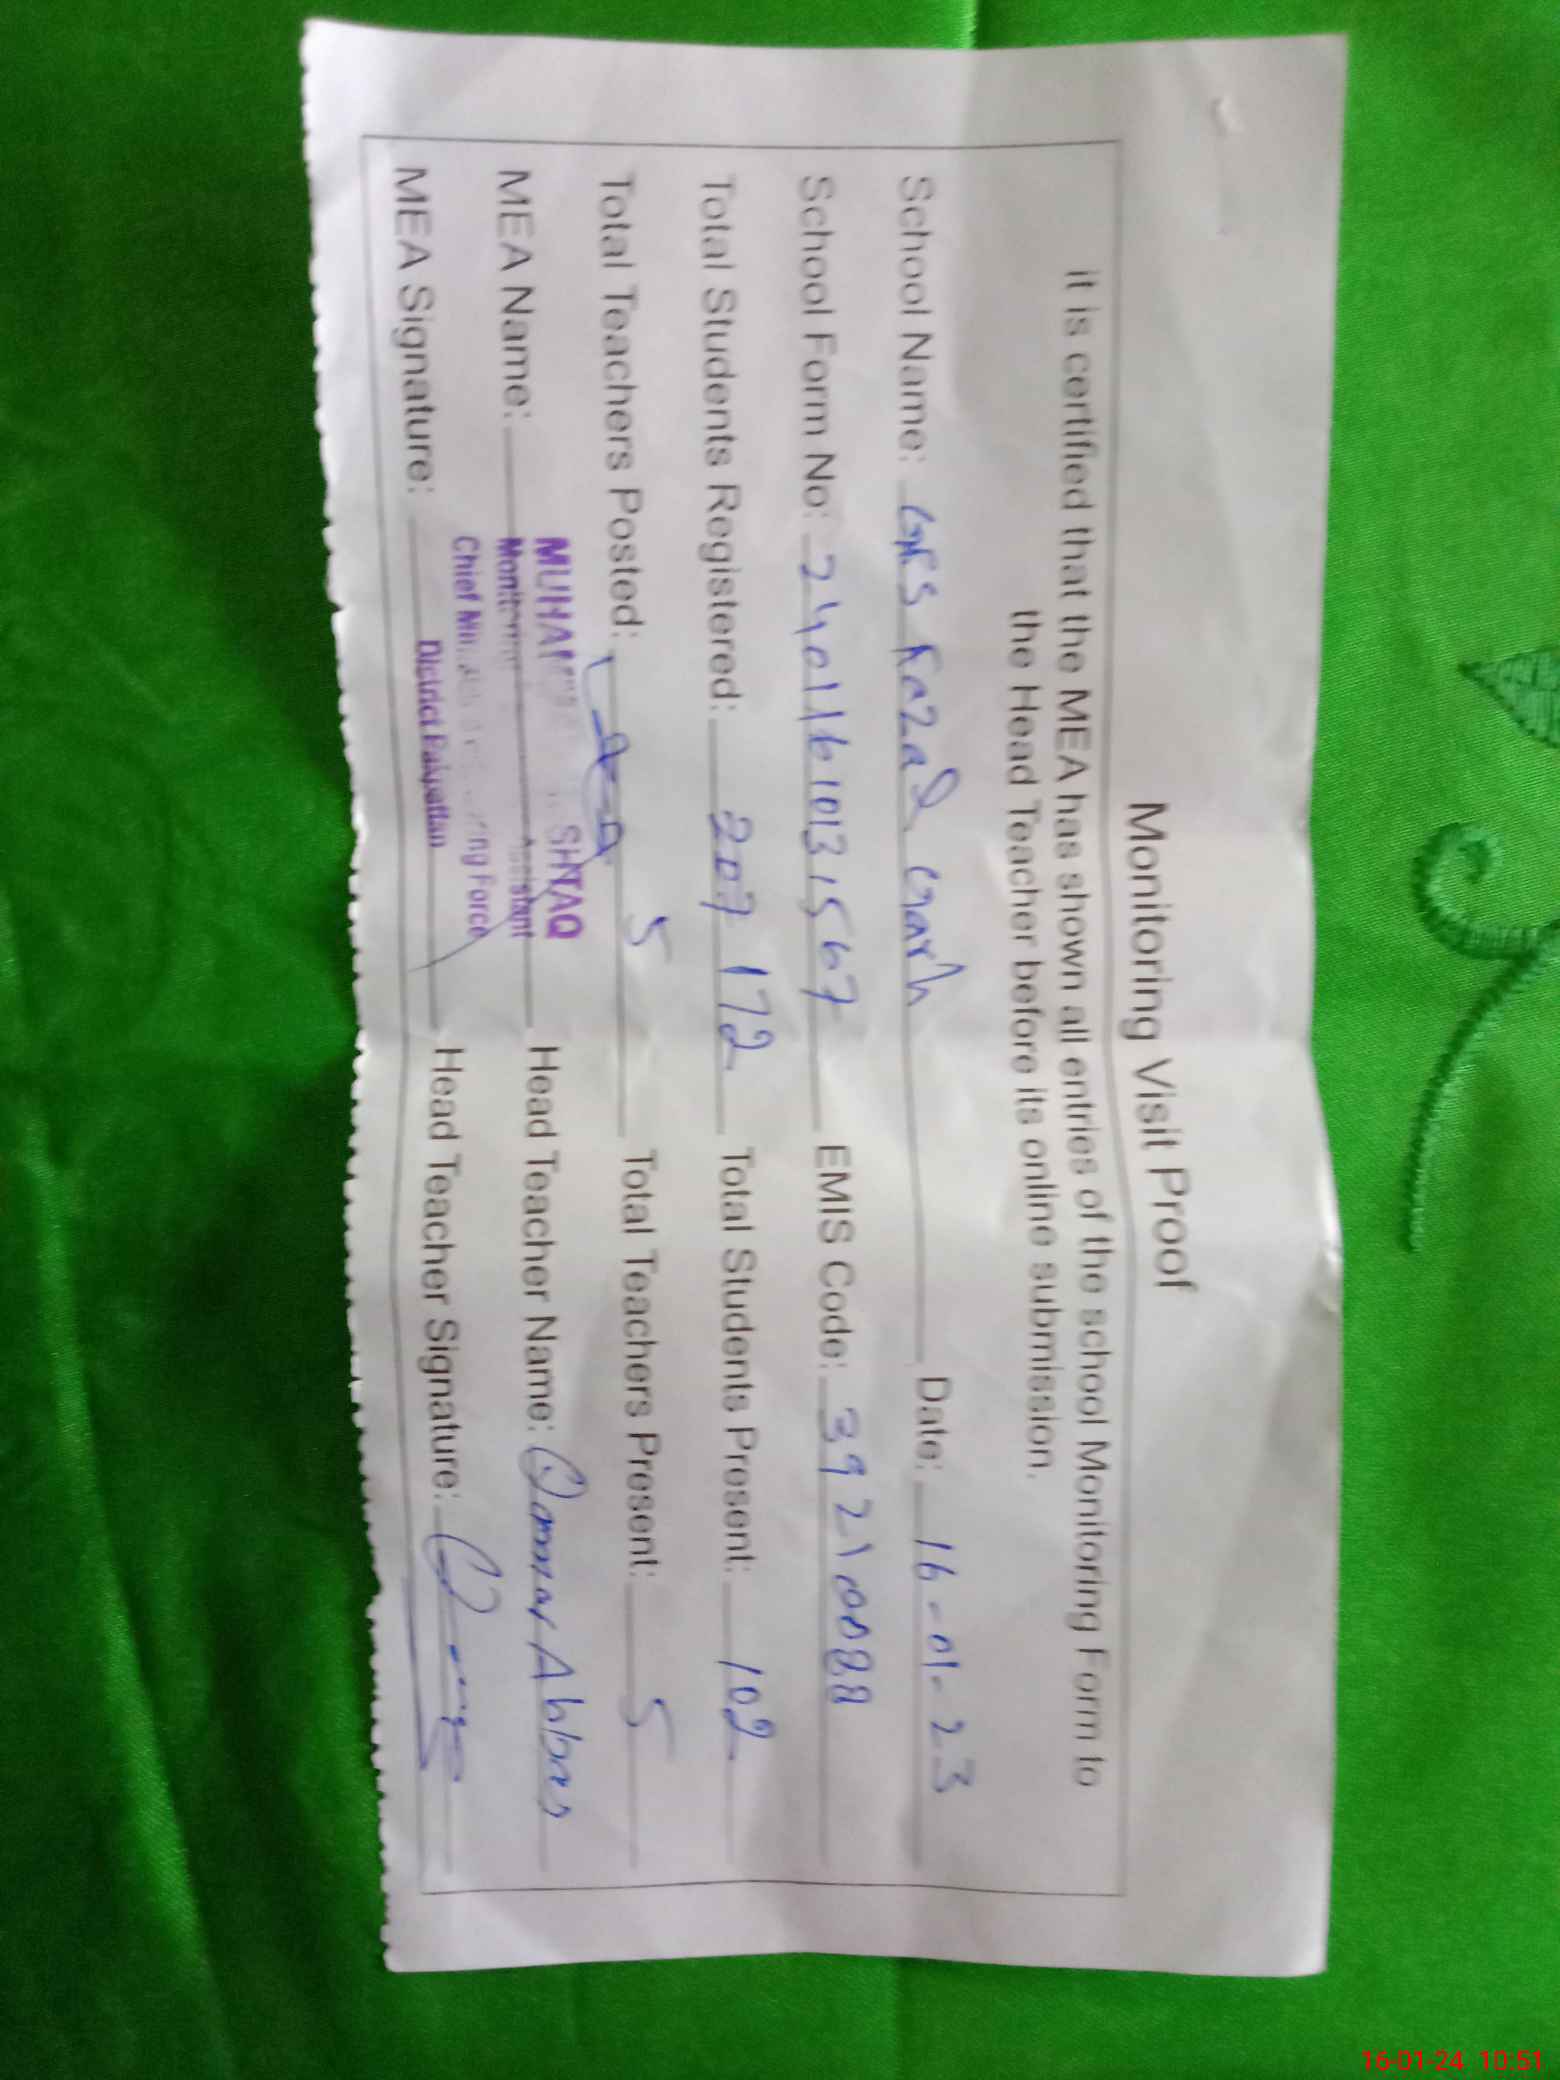 Monitoring Visit Proof
it is certified that the MEA has shown all entries of the school Monitoring Form to
the Head Teacher before its online submission.
School Name: GES Fazad Garh Date: 16-01-23
School Form No: 24011610131567 EMIS Code: 39210088
Total Students Registered: 207 172 Total Students Present: 102
Total Teachers Posted: 5 Total Teachers Present: 5
MEA Name: Head Teacher Name: Qamar Abbas
SHTAQ
Monitoring Assistant
Chief ng Force
District Pakpattan
MEA Signature: Head Teacher Signature:
16-01-24 10:51